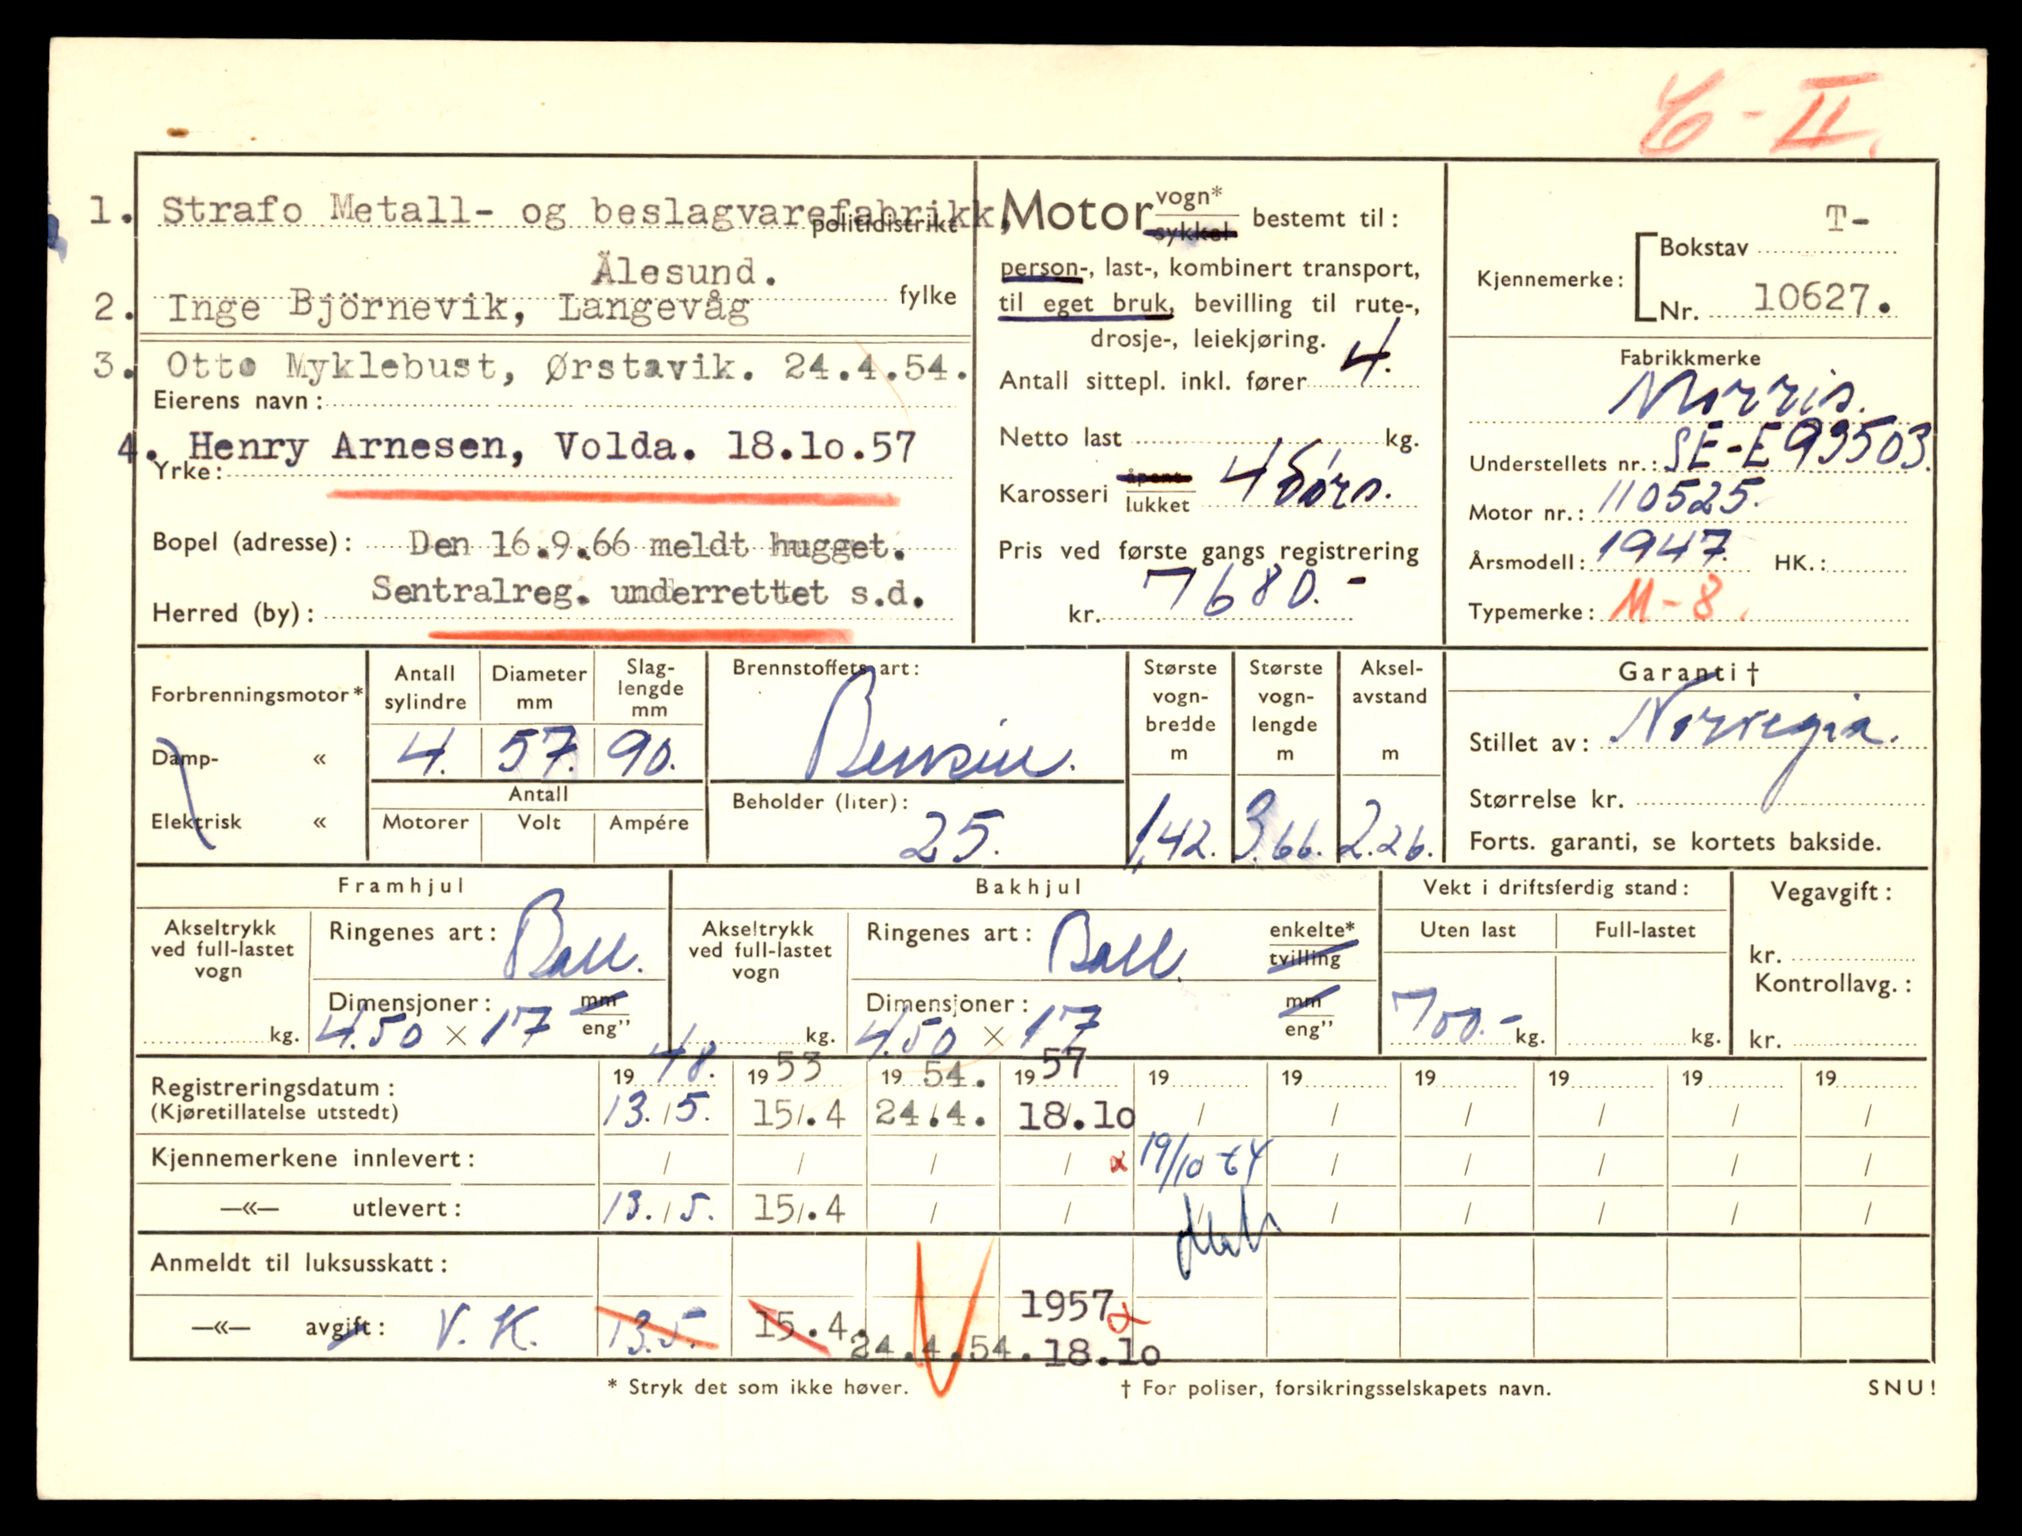 C-II.
1. Strafo Metall- og beslagvarefabrikk,
politidistrikt
Ålesund.
2. Inge Björnevik, Langevåg
fylke
3. Otto Myklebust, Ørstavik. 24.4.54.
Eierens navn:
4. Henry Arnesen, Volda. 18.10.57
Yrke:
Bopel (adresse): Den 16.9.66 meldt hugget.
Sentralreg. underrettet s.d.
Herred (by):
Motor vogn*
sykkel bestemt til:
person-, last-, kombinert transport,
til eget bruk, bevilling til rute-,
drosje-, leiekjøring.
Antall sittepl. inkl. fører 4.
Netto last kg.
Karosseri åpent
lukket 4 dörs.
Pris ved første gangs registrering
kr. 7680.-
Kjennemerke: Bokstav T-
Nr. 10627.
Fabrikkmerke
Morris.
Understellets nr.: SE-E93503.
Motor nr.: 110525.
Årsmodell: 1947. HK.:
Typemerke: M-8.
Forbrenningsmotor*
Damp- «
Elektrisk «
Antall sylindre
4.
Diameter mm
57.
Slag-
lengde
mm
90.
Antall
Motorer Volt Ampére
Brennstoffets art:
Bensin.
Beholder (liter):
25.
Største
vogn-
bredde
m
1,42.
Største
vogn-
lengde
m
3.66.
Aksel-
avstand
m
2.26.
Garanti †
Stillet av: Norvegia.
Størrelse kr.
Forts. garanti, se kortets bakside.
Framhjul
Akseltrykk
ved full-lastet
vogn
kg.
Ringenes art: Ball.
Dimensjoner: mm
4.50 × 17 eng”
Bakhjul
Akseltrykk
ved full-lastet
vogn
kg.
Ringenes art: Ball. enkelte*
tvilling
Dimensjoner: mm
4.50 × 17 eng”
Vekt i driftsferdig stand:
Uten last Full-lastet
700.- kg. kg.
Vegavgift:
kr.
Kontrollavg.:
kr.
1948. 1953 1954. 1957 19 19 19 19 19 19
Registreringsdatum:
(Kjøretillatelse utstedt) 13./5. 15/.4 24./4. 18/.10 / / / / / /
Kjennemerkene innlevert: / / / / 19/10 64 / / / / /
—«— utlevert: 13./5. 15/.4 / / / / / / / /
Anmeldt til luksusskatt:
—«— avgift: V.K. 13.5. 15.4. 24.4.54. 1957 18.10
* Stryk det som ikke høver. † For poliser, forsikringsselskapets navn. SNU!